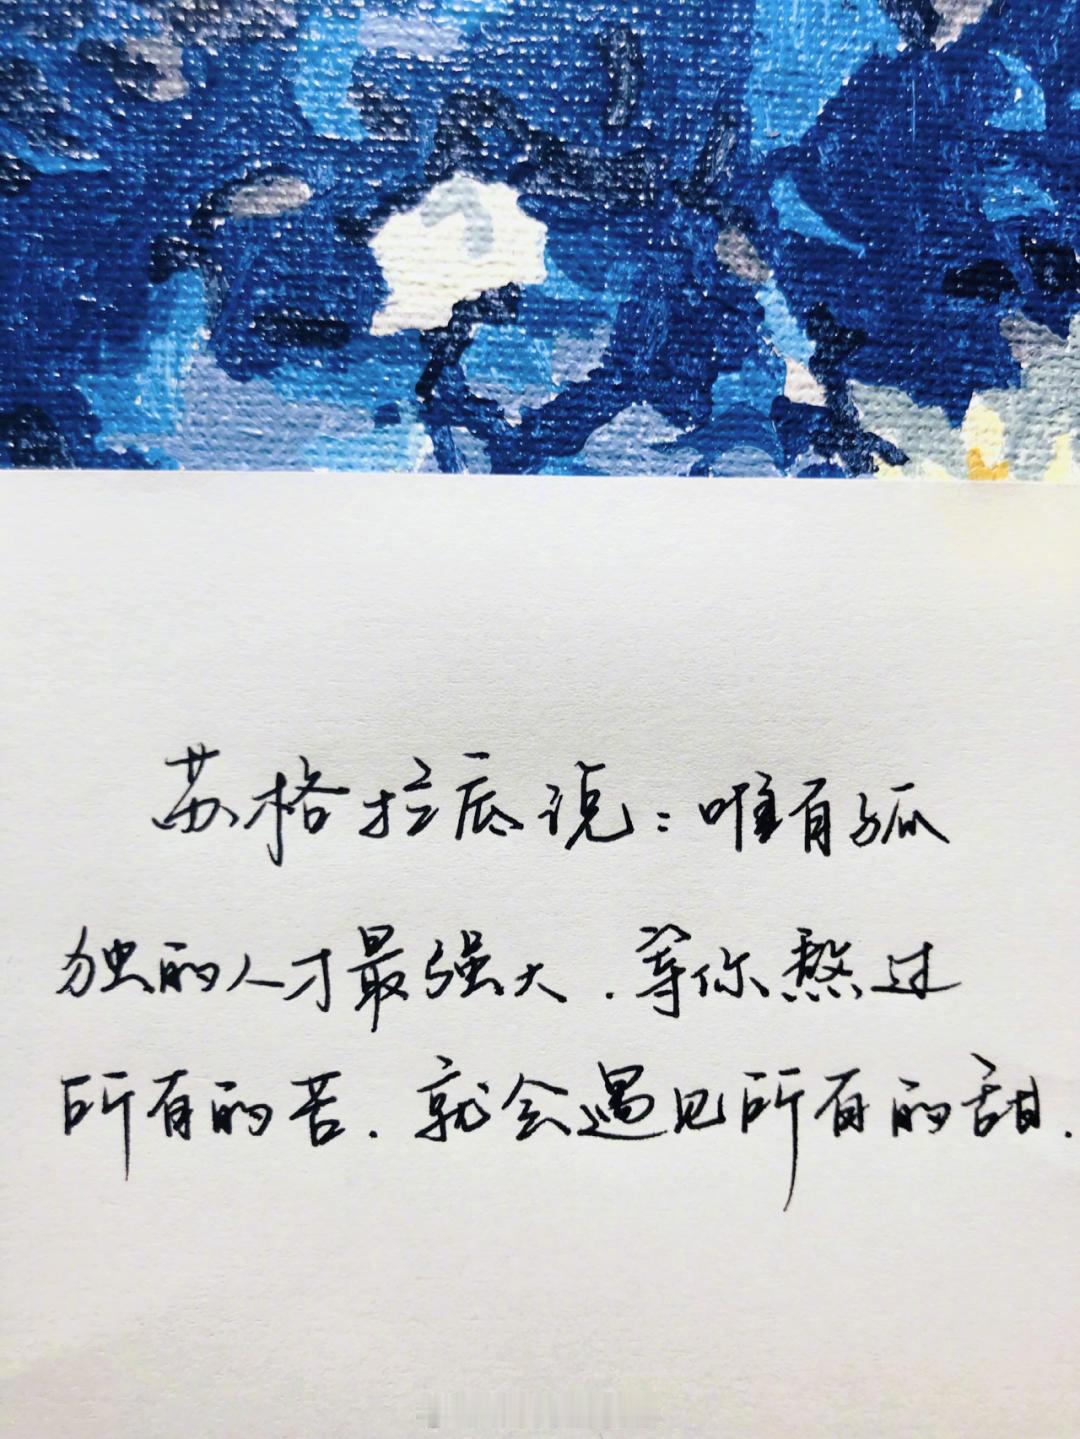 苏格拉底说：唯有孤
独的人才最强大．等你熬过
所有的苦．就会遇见所有的甜．